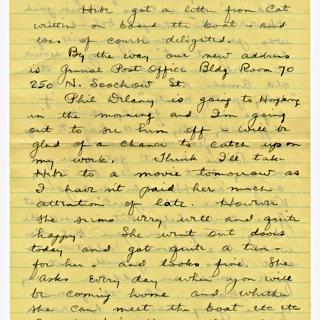 Hibe got a letter from Cat
written on board the boat - and
was of course delighted.
By the way our new address
is General Post Office Bldg Room 70
250 N. Soochow St.
Phil Delany is going to Hongkong
in the morning and I'm going
out to see him off - will be
glad of a chance to catch up on
my work. Think I'll take
Hibe to a movie tomorrow as
I haven't paid her much
attention of late. However
she seems very well and quite
happy. She went out doors
today and got quite a tan -
for her - and looks fine. She
asks every day when you will
be coming home and whether
she can meet the boat etc etc